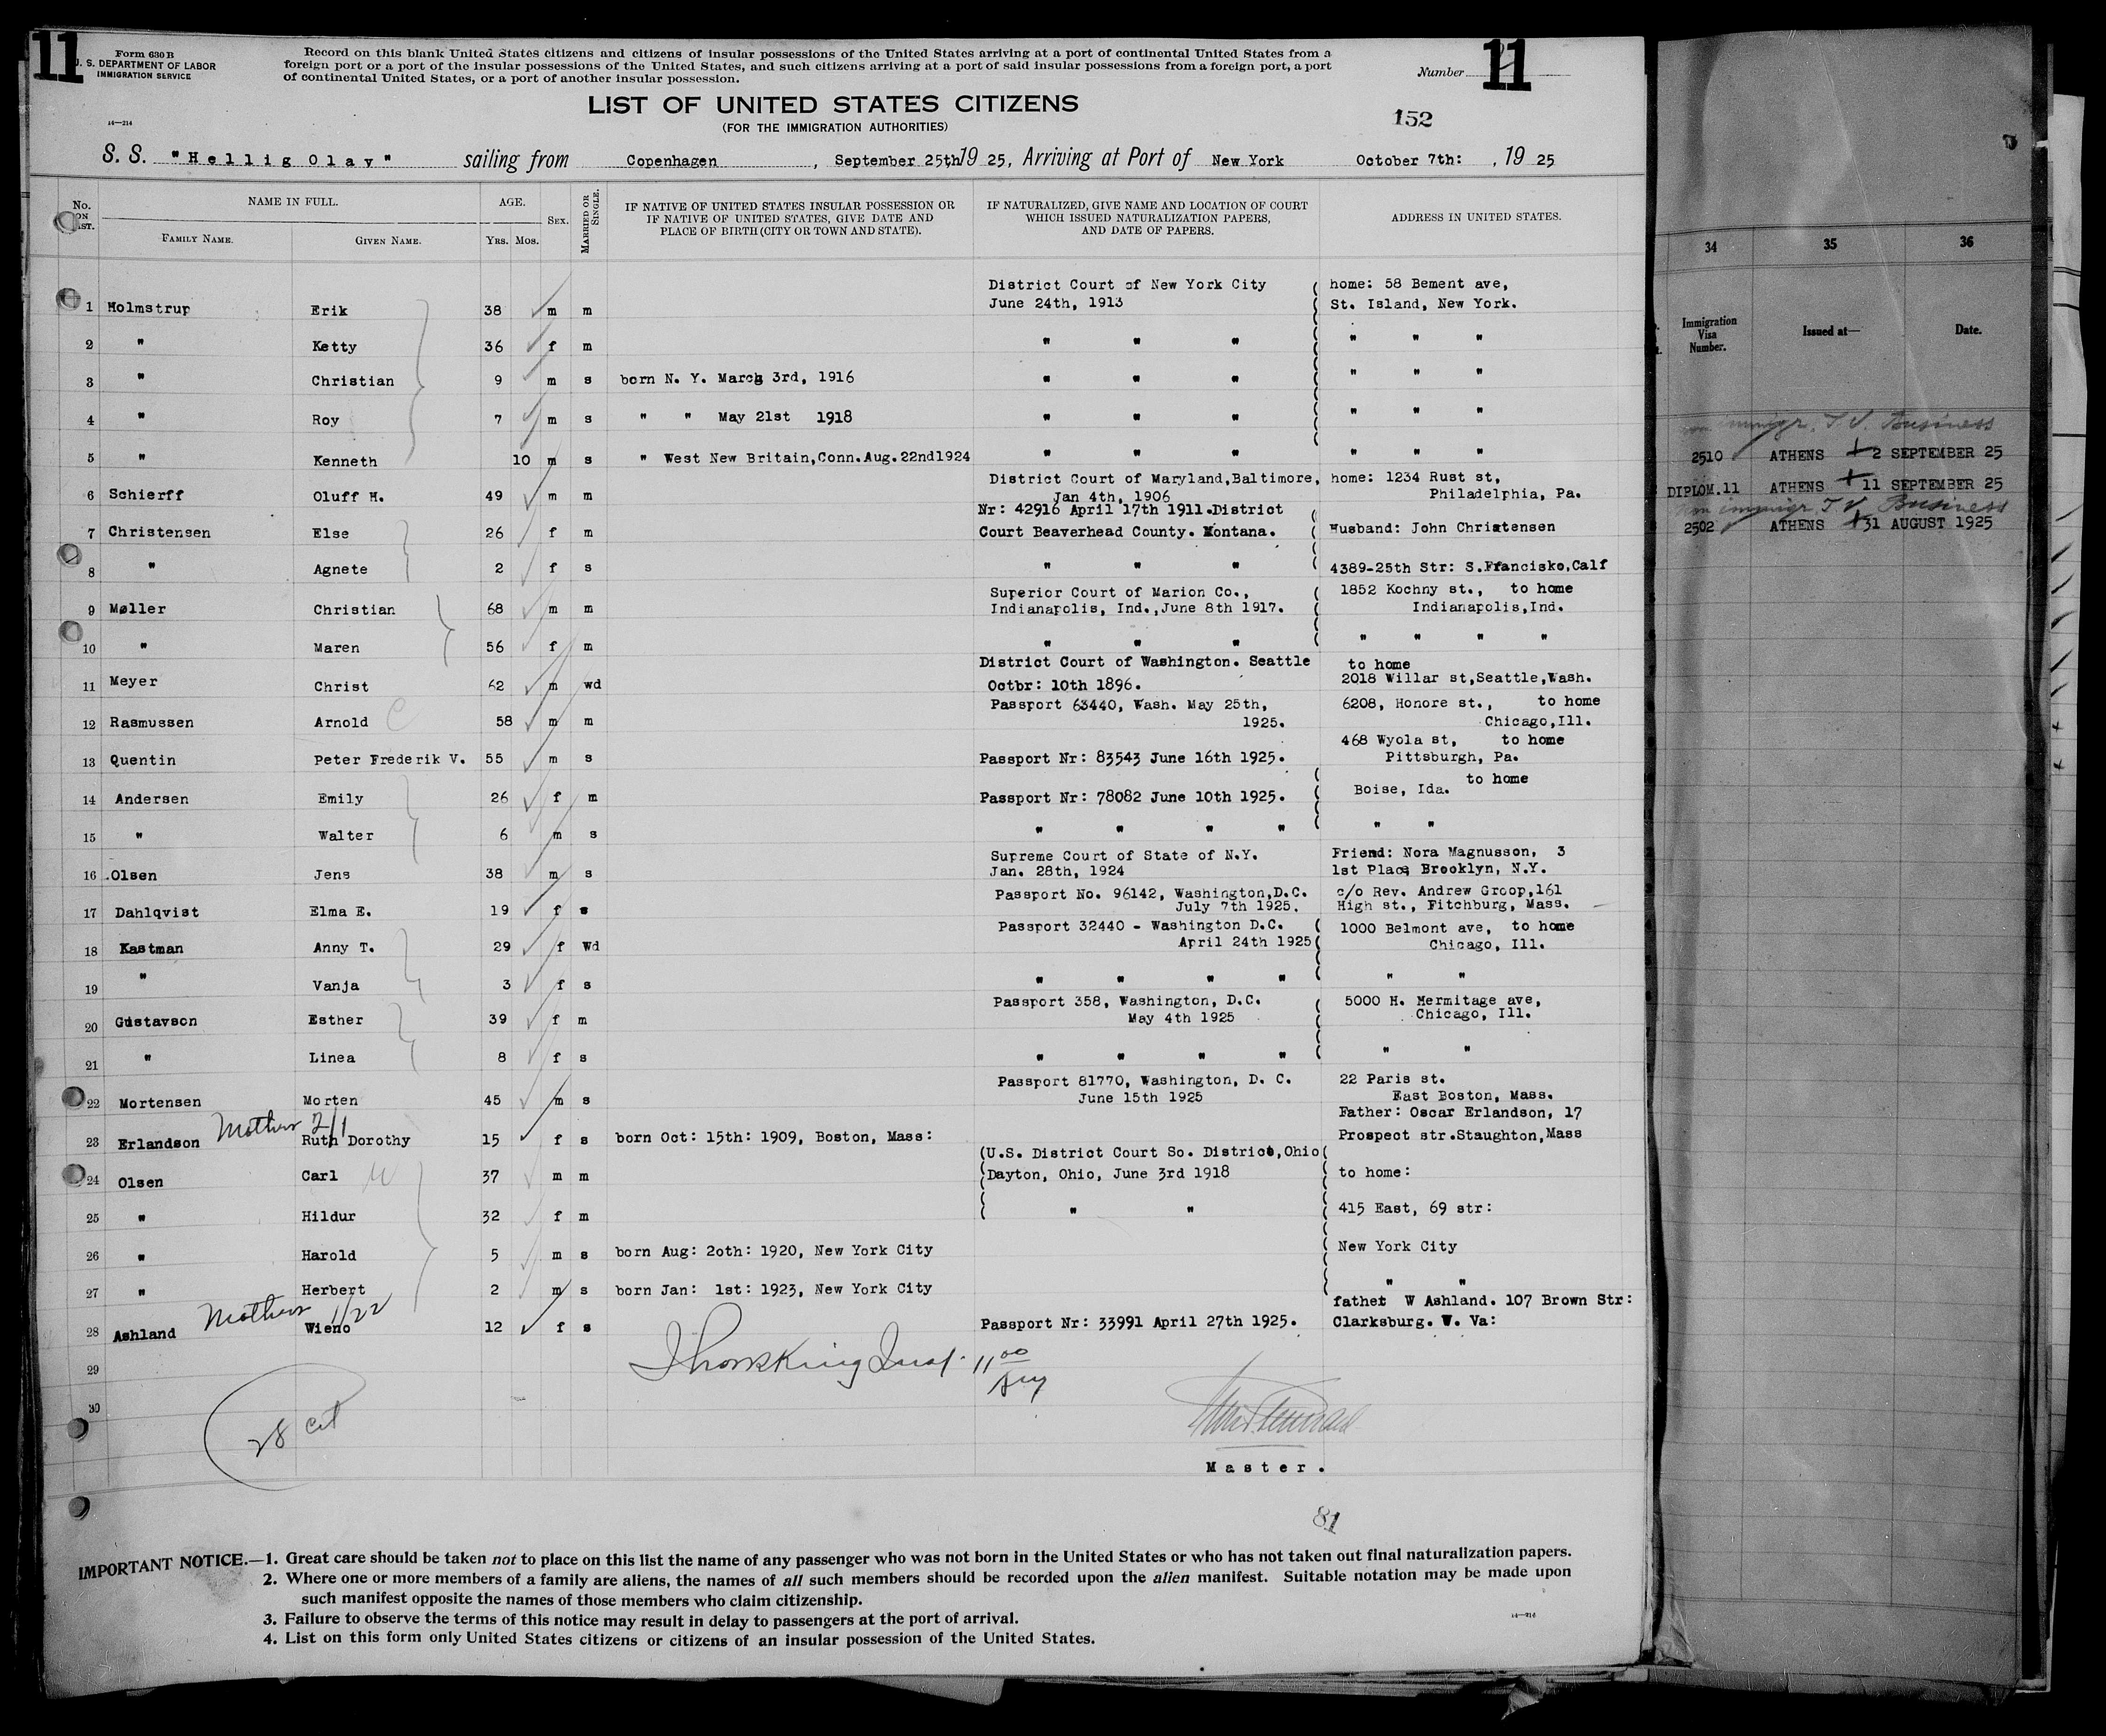 11
Form 630 B
U. S. DEPARTMENT OF LABOR
IMMIGRATION SERVICE
Record on this blank United States citizens and citizens of insular possessions of the United States arriving at a port of continental United States from a
foreign port or a port of the insular possessions of the United States, and such citizens arriving at a port of said insular possessions from a foreign port, a port
of continental United States, or a port of another insular possession.
Number 11
LIST OF UNITED STATES CITIZENS
(FOR THE IMMIGRATION AUTHORITIES)
14—214
152
S. S. "Hellig Olav" sailing from Copenhagen, September 25th 1925, Arriving at Port of New York October 7th: , 1925
No. ON LIST. NAME IN FULL. AGE. SEX. MARRIED OR SINGLE. IF NATIVE OF UNITED STATES INSULAR POSSESSION OR IF NATIVE OF UNITED STATES, GIVE DATE AND PLACE OF BIRTH (CITY OR TOWN AND STATE). IF NATURALIZED, GIVE NAME AND LOCATION OF COURT WHICH ISSUED NATURALIZATION PAPERS, AND DATE OF PAPERS. ADDRESS IN UNITED STATES.
FAMILY NAME. GIVEN NAME. YRS. MOS.
District Court of New York City home: 58 Bement ave,
1 Holmstrup Erik 38 m m June 24th, 1913 St. Island, New York.
2 " Ketty 36 f m " " " " " "
3 " Christian 9 m s born N. Y. March 3rd, 1916 " " " " " "
4 " Roy 7 m s " " May 21st 1918 " " " " " "
5 " Kenneth 10 m s " West New Britain,Conn.Aug.22nd1924 " " " " " "
District Court of Maryland,Baltimore, home: 1234 Rust st,
6 Schierff Oluff H. 49 m m Jan 4th, 1906 Philadelphia, Pa.
Nr: 42916 April 17th 1911.District
7 Christensen Else 26 f m Court Beaverhead County. Montana. Husband: John Christensen
8 " Agnete 2 f s " " " 4389-25th Str: S.Francisko,Calf
Superior Court of Marion Co., 1852 Kochny st., to home
9 Møller Christian 68 m m Indianapolis, Ind.,June 8th 1917. Indianapolis,Ind.
10 " Maren 56 f m " " " " " " "
District Court of Washington. Seattle to home
11 Meyer Christ 62 m wd Octbr: 10th 1896. 2018 Willar st,Seattle,Wash.
Passport 63440, Wash. May 25th, 6208, Honore st., to home
12 Rasmussen Arnold C 58 m m 1925. Chicago,Ill.
468 Wyola st, to home
13 Quentin Peter Frederik V. 55 m s Passport Nr: 83543 June 16th 1925. Pittsburgh, Pa.
to home
14 Andersen Emily 26 f m Passport Nr: 78082 June 10th 1925. Boise, Ida.
15 " Walter 6 m s " " " " " "
Supreme Court of State of N.Y. Friend: Nora Magnusson, 3
16 Olsen Jens 38 m s Jan. 28th, 1924 1st Place Brooklyn, N.Y.
Passport No. 96142, Washington,D.C. c/o Rev. Andrew Groop,161
17 Dahlqvist Elma E. 19 f s July 7th 1925. High st., Fitchburg, Mass.
Passport 32440 - Washington D.C. 1000 Belmont ave, to home
18 Kastman Anny T. 29 f Wd April 24th 1925 Chicago, Ill.
19 " Vanja 3 f s " " " " " "
Passport 358, Washington, D.C. 5000 H. Mermitage ave,
20 Gustavson Esther 39 f m May 4th 1925 Chicago, Ill.
21 " Linea 8 f s " " " " " "
Passport 81770, Washington, D. C. 22 Paris st.
22 Mortensen Morten 45 m s June 15th 1925 East Boston, Mass.
Mother 2/1 Father: Oscar Erlandson, 17
23 Erlandson Ruth Dorothy 15 f s born Oct: 15th: 1909, Boston, Mass: Prospect str.Staughton,Mass
(U.S. District Court So. District,Ohio
24 Olsen Carl W 37 m m Dayton, Ohio, June 3rd 1918 to home:
25 " Hildur 32 f m " " 415 East, 69 str:
26 " Harold 5 m s born Aug: 2oth: 1920, New York City New York City
27 " Herbert 2 m s born Jan: 1st: 1923, New York City " "
Mother 1/22 father W Ashland. 107 Brown Str:
28 Ashland Wieno 12 f s Passport Nr: 33991 April 27th 1925. Clarksburg. W. Va:
29
11 00
30
28 cit
Master.
81
IMPORTANT NOTICE.—1. Great care should be taken not to place on this list the name of any passenger who was not born in the United States or who has not taken out final naturalization papers.
2. Where one or more members of a family are aliens, the names of all such members should be recorded upon the alien manifest. Suitable notation may be made upon
such manifest opposite the names of those members who claim citizenship.
3. Failure to observe the terms of this notice may result in delay to passengers at the port of arrival.
4. List on this form only United States citizens or citizens of an insular possession of the United States.
14—214
34 35 36
Immigration Visa Number. Issued at— Date.
non immigr. T.V. Business
2510 ATHENS 2 SEPTEMBER 25
DIPLOM.11 ATHENS 11 SEPTEMBER 25
Non immigr. T.V. Business
2502 ATHENS 31 AUGUST 1925